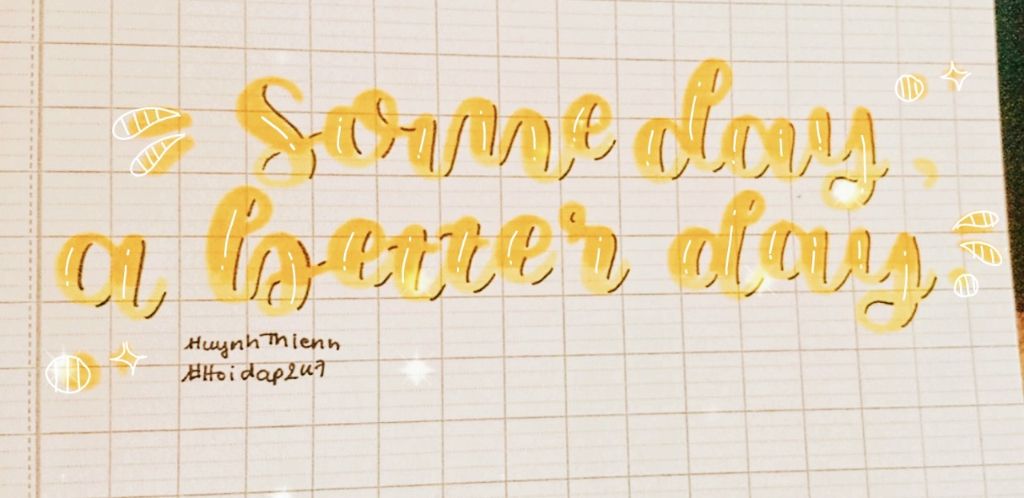 Some day,
a better day.
HuynhThienn
#Hoidap247